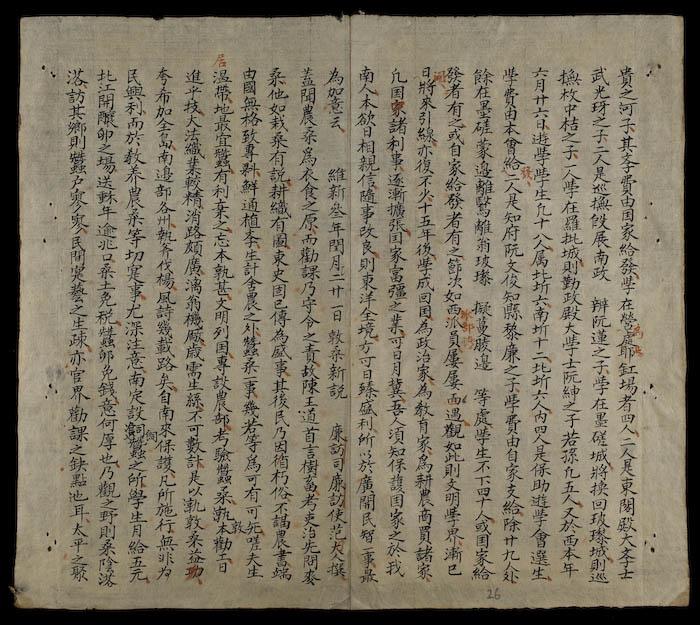 貴之河子其季費由国家給發學在營㢙缸場者四人二人是東閣殿大孝士
武光玡之子二人是巡撫段展南政 辨阮蓮之子學在墨磋城將換回玻璨城則巡
撫枚中桔之子一人學在羅批城則勤政殿大學士阮紳之子若孫凢五人又於西本年
六月廿六日遊學學生凢十八人属北圻六南圻十二北圻六人内四人是保助遊學會選生
學費由本會給二人是知府阮文俊知縣黎廉之子學費由自家支給除廿九人外
餘在墨磋蒙邊離驚離翁玻璨 擬葛駿邉 等處學生不下四十人或国家給
發者有之或自家給發者有之節次如西派員屡屡面過觀如此則文明學界漸已
日將來引線亦復不少十五年後學成回国為政治家為教育家為新農商買諸家
凢国家諸利事逐漸擴張国家富彊之業可日月冀吾人須知保護国家之於我
南人本欲日相親信隨事改良則東洋全境方可日臻盛利所以於廣開民智一事最
為如意云 維新叁年閏月二十一日 敦桒新說 廉訪司廉訪使范大人撰
蓋聞農桑為衣食之原而勸課乃守令之責故陳王道首言樹畜考吏治先問麥
桑他如栽桒有説耕織有圖東史固已傳為盛事其後民乃因循朽俗不諳農書端
由國無格致専剥鮮通植李生計舍農之外蠶桒一事幾若等為可有可死嗟夫生
居温帶地最宜蠶有利棄之忘本孰甚文明列国専設農部考驗蠶桒執本勸工日
進乎技大法織業較精消路頗廣漓翁機厰歳需生絲不可數計是以執敦桒益功
夸希加全島南邊部各州執斧伐楊風詩幾載路矣自南來保護凢所施行無非為
民興利而於教养農桒等切寔事尤深注意南定設飼蠶之所學生月給五元
北江開釀卵之場送酥年逾兆口桒土免税蠶卵免錢意何厚也乃觀之野則桒陰落
落訪其鄉則蠶户寥寥民間寔藝之生疎亦官界勸課之缺點也耳太平之聚
26